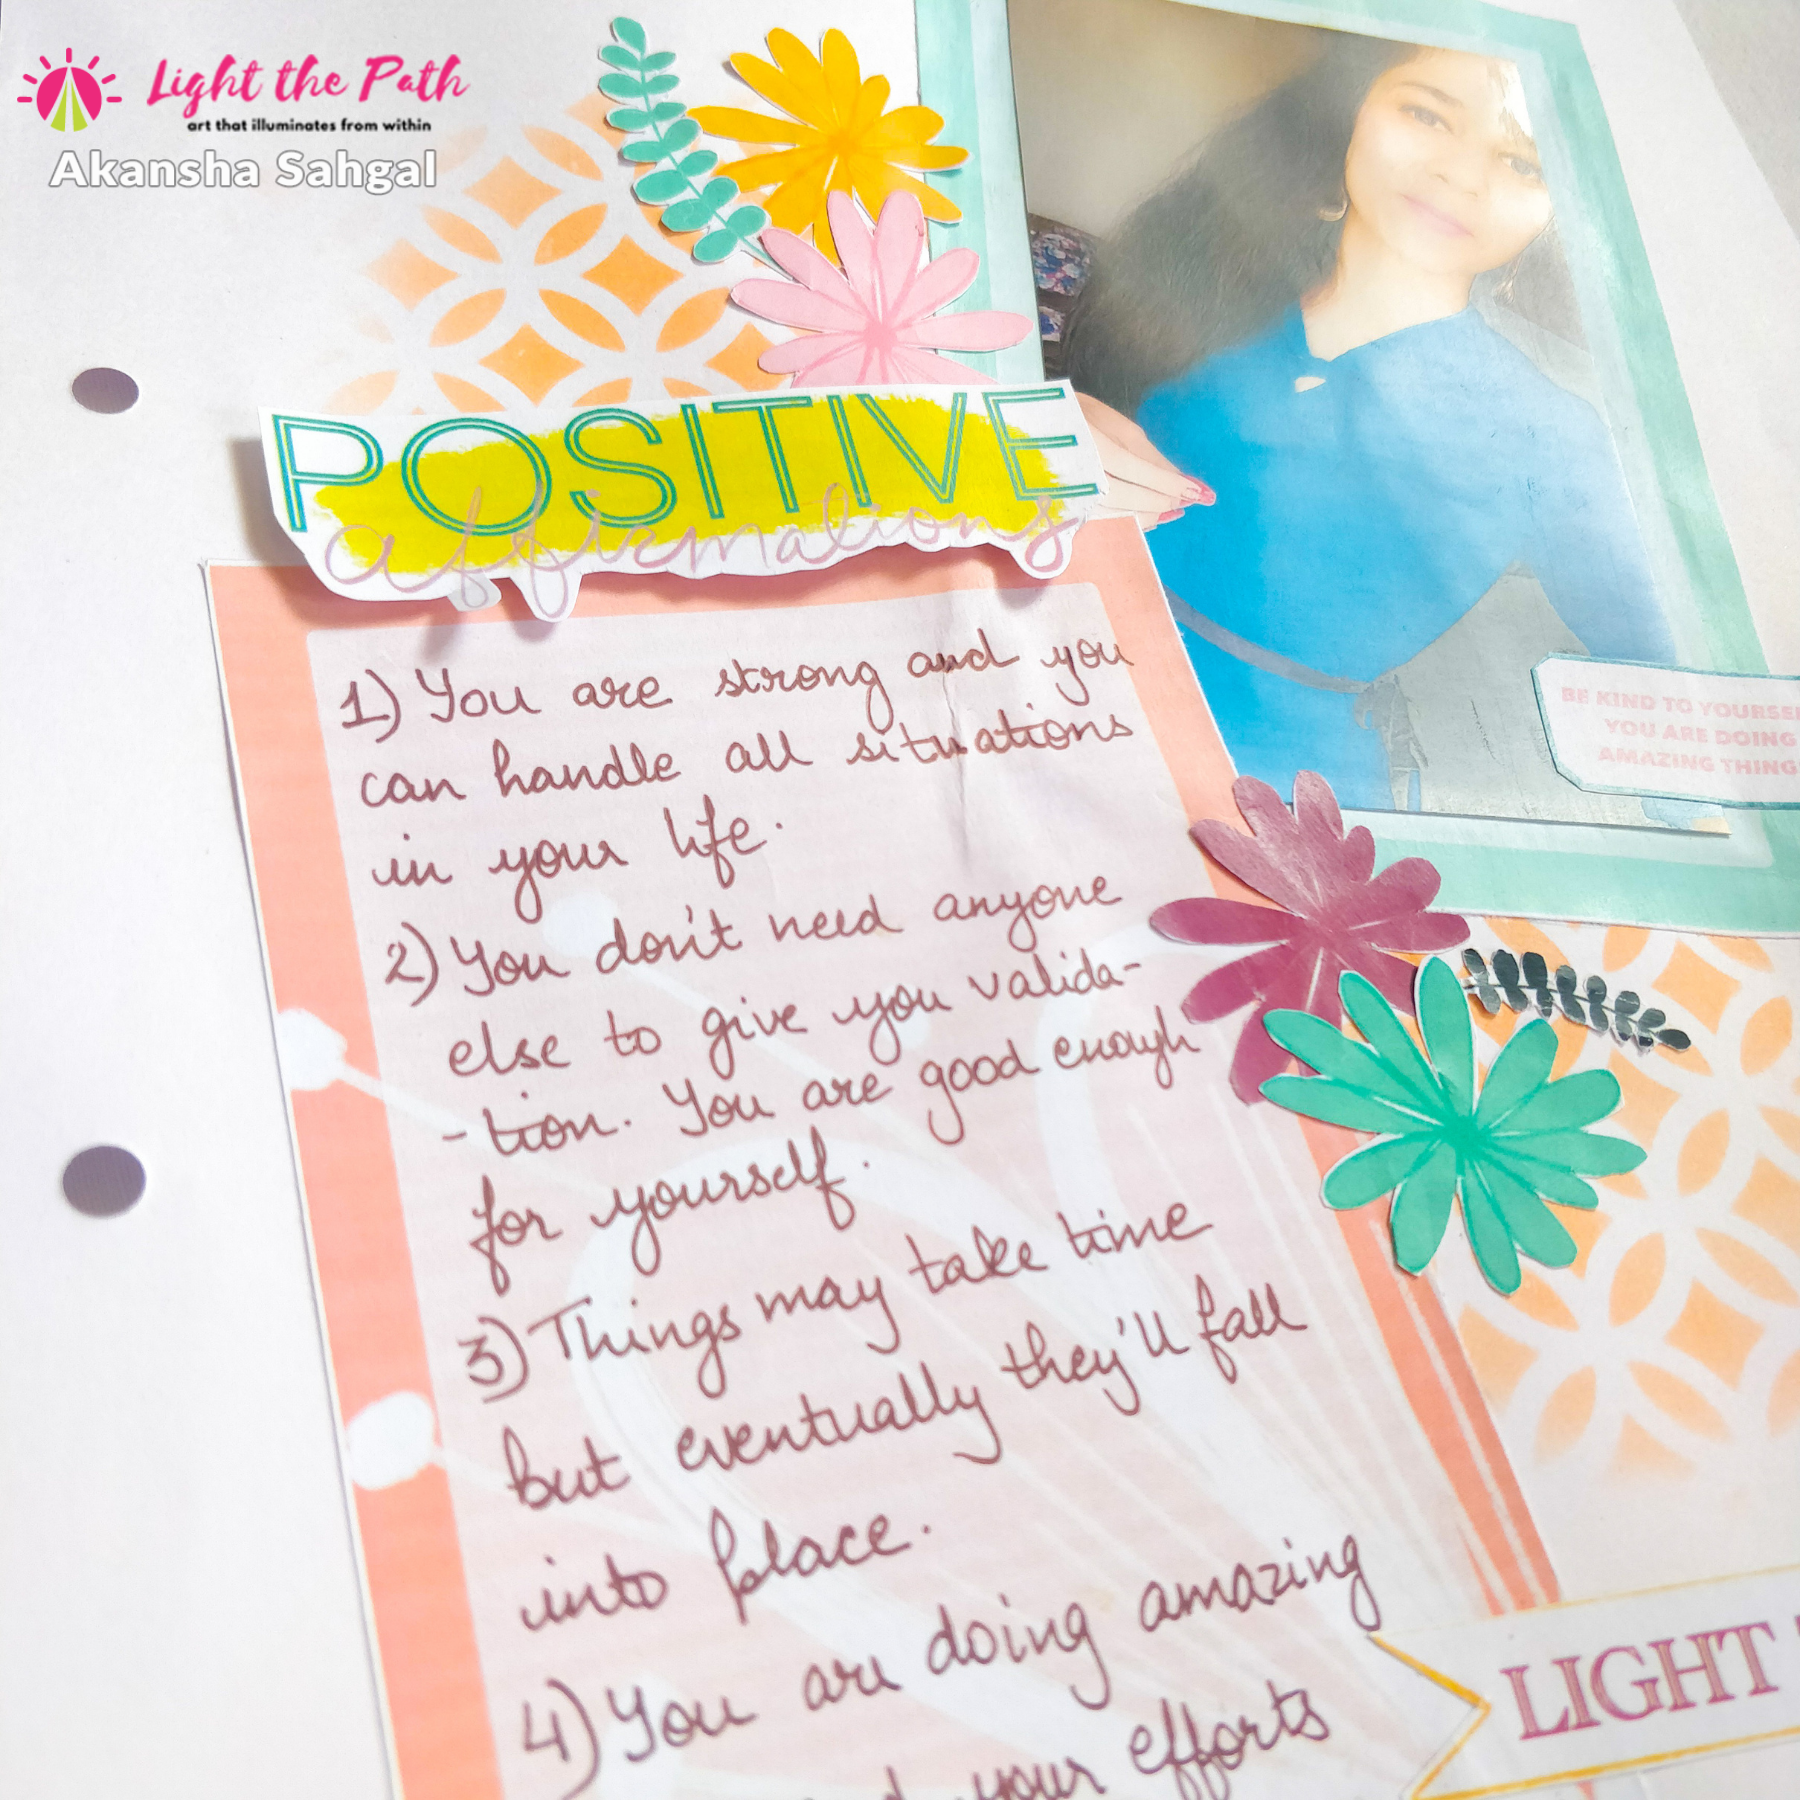 Light the Path
art that illuminates from within
Akansha Sahgal
POSITIVE
affirmations
1) You are strong and you
can handle all situations
in your life.
2) You don't need anyone
else to give you valida-
-tion. You are good enough
for yourself.
3) Things may take time
but eventually they'll fall
into place.
4) You are doing amazing
your efforts
BE KIND TO YOURSE
YOU ARE DOING
AMAZING THING
LIGHT